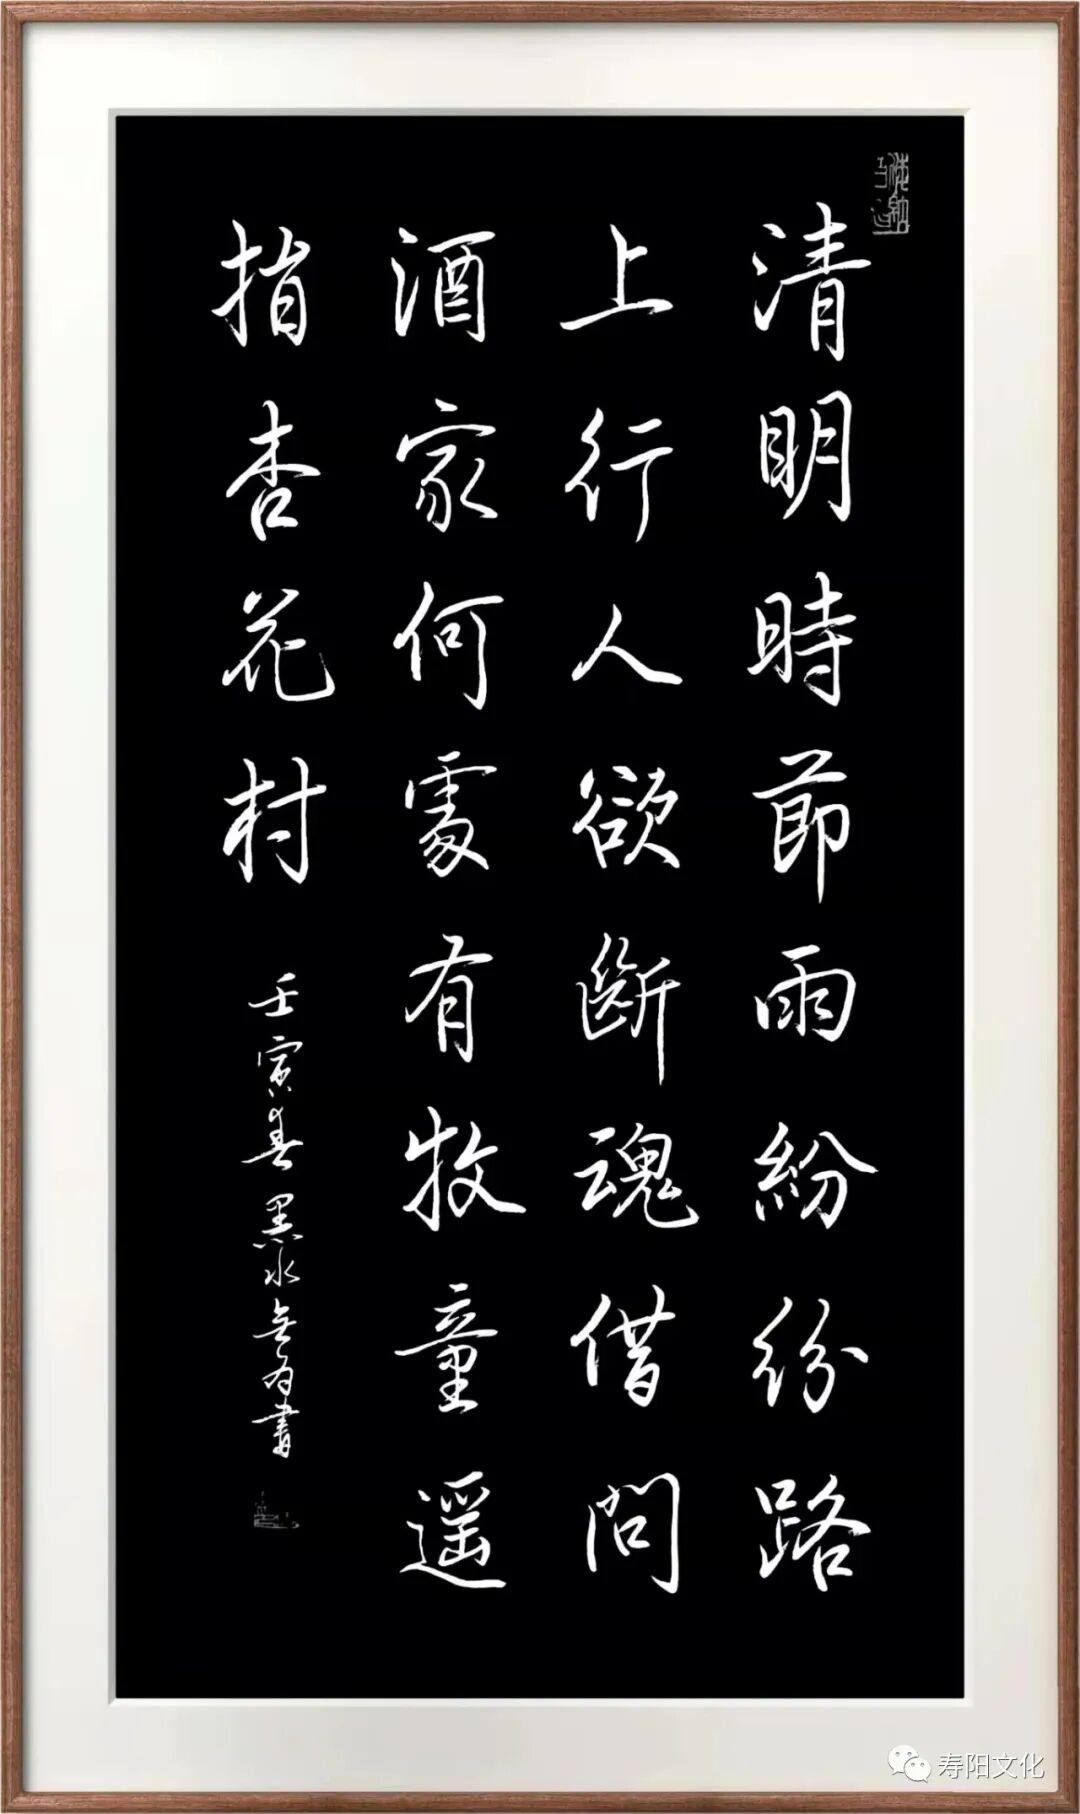 清明時節雨紛紛路
上行人欲斷魂借問
酒家何處有牧童遥
指杏花村
壬寅春墨水無为書
寿阳文化